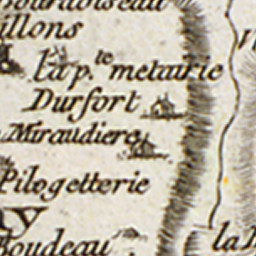 illons
la p.te metairie
Durfort
Miraudiere
Pilogetterie
Boudeau
la